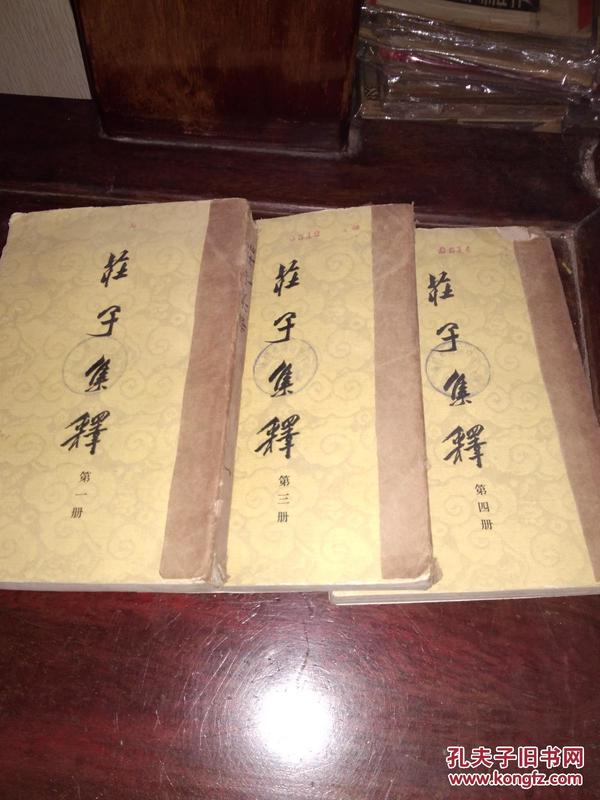 莊子集釋
第一册
3512
莊子集釋
第三册
莊子集釋
第四册
孔夫子旧书网
www.kongfz.com